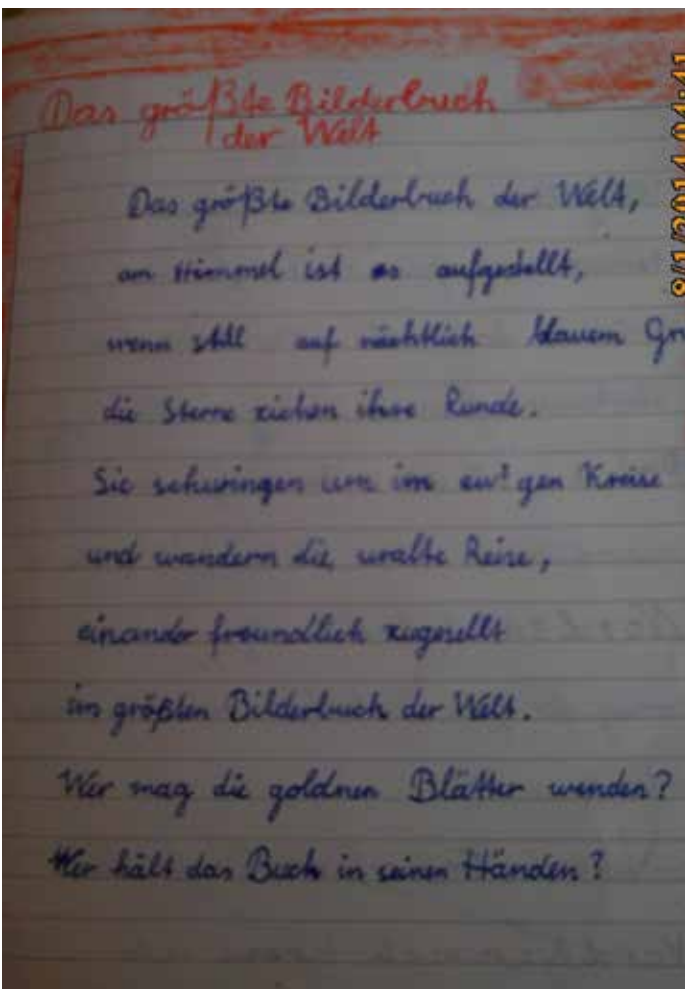 Das größte Bilderbuch
der Welt
Das größte Bilderbuch der Welt,
am Himmel ist es aufgestellt,
wenn still auf nächtlich blauem Gr
die Sterne ziehen ihre Runde.
Sie schwingen uns im ew'gen Kreise
und wandern die uralte Reise,
einander freundlich zugesellt
im größten Bilderbuch der Welt.
Wer mag die goldnen Blätter wenden?
Wer hält das Buch in seinen Händen?
8/1/2014 04:41